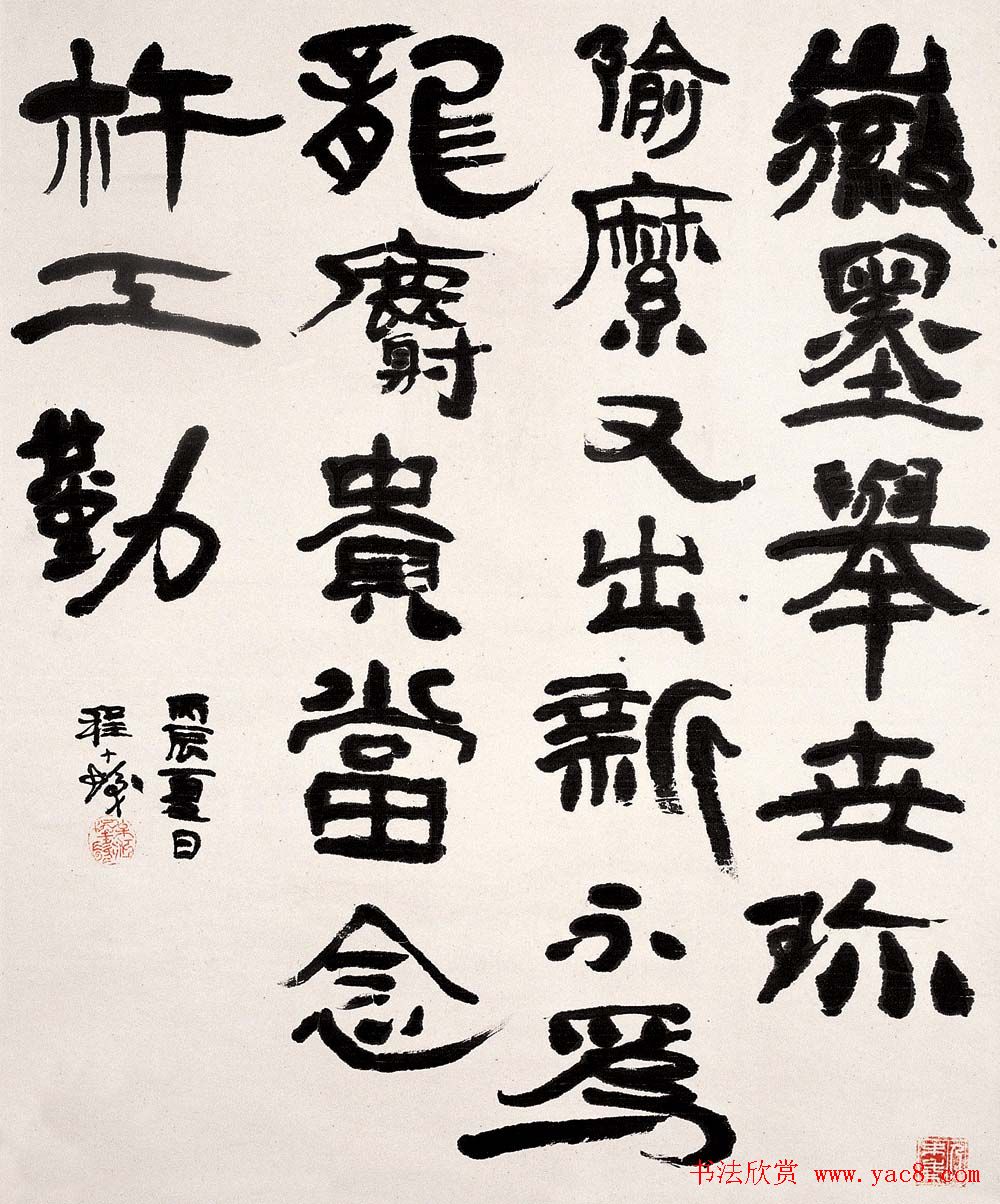 徽墨舉世珍
隃麋又出新不為
龍麝貴當念
杵工勤
丙辰夏日
程十髮
书法欣赏 www.yac8.com